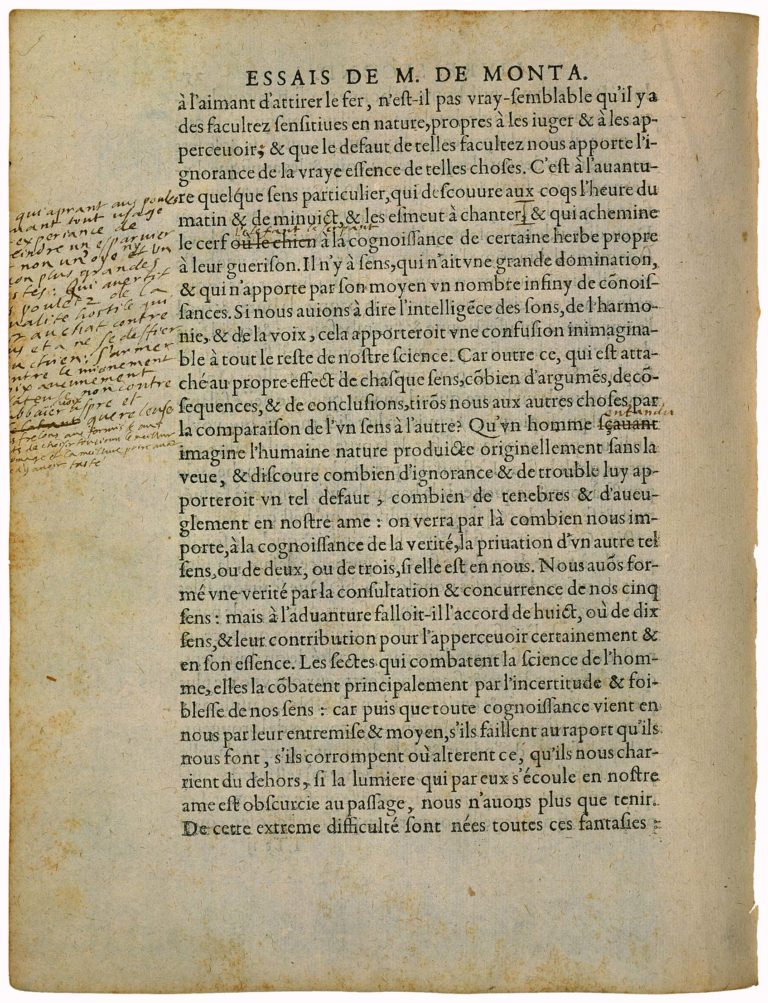 ESSAIS DE M. DE MONTA.
à l'aimant d'attirer le fer, n'eſt-il pas vray-ſemblable qu'il y a
des facultez ſenſitiues en nature, propres à les iuger & à les ap-
perceuoir; & que le defaut de telles facultez nous apporte l'i-
gnorance de la vraye eſſence de telles choſes. C'eſt à l'auantu-
re quelque ſens particulier, qui deſcouure aux coqs l'heure du
matin & de minuict, & les eſmeut à chanter, & qui achemine
le cerf ou le chien à la cognoiſſance de certaine herbe propre
à leur gueriſon. Il n'y à ſens, qui n'ait vne grande domination,
& qui n'apporte par ſon moyen vn nombre infiny de cõnoiſ-
ſances. Si nous auions à dire l'intelligẽce des ſons, de l'harmo-
nie, & de la voix, cela apporteroit vne confuſion inimagina-
ble à tout le reſte de noſtre ſcience. Car outre ce, qui eſt atta-
ché au propre effect de chaſque ſens, cõbien d'argumẽs, de cõ-
ſequences, & de concluſions, tirõs nous aux autres choſes par
la comparaiſon de l'vn ſens à l'autre? Qu'vn homme ſçauant
entandu
imagine l'humaine nature produicte originellement ſans la
veuë, & diſcoure combien d'ignorance & de trouble luy ap-
porteroit vn tel defaut, combien de tenebres & d'aueu-
glement en noſtre ame: on verra par là combien nous im-
porte, à la cognoiſſance de la verité, la priuation d'vn autre tel
ſens, ou de deux, ou de trois, ſi elle eſt en nous. Nous auõs for-
mé vne verité par la conſultation & concurrence de nos cinq
ſens: mais à l'aduanture falloit-il l'accord de huict, ou de dix
ſens, & leur contribution pour l'apperceuoir certainement &
en ſon eſſence. Les ſectes qui combatent la ſcience de l'hom-
me, elles la cõbatent principalement par l'incertitude & foi-
bleſſe de nos ſens: car puis que toute cognoiſſance vient en
nous par leur entremiſe & moyen, s'ils faillent au raport qu'ils
nous font, s'ils corrompent où alterent ce, qu'ils nous char-
rient du dehors, ſi la lumiere qui par eux s'écoule en noſtre
ame eſt obſcurcie au paſſage, nous n'auons plus que tenir.
De cette extreme difficulté ſont nées toutes ces fantaſies:
qui aprant aus poules
mant tout usage
experiance de
eindre un esparvier
non un oye et un
on plus grandes
stes: Qui avertit
poulets de la
ualite hostile qui
au chat contre
et a ne se deffier
chien. S'armer
ntre le mionement
aucunement
contre
abbaier aspre et
querelense